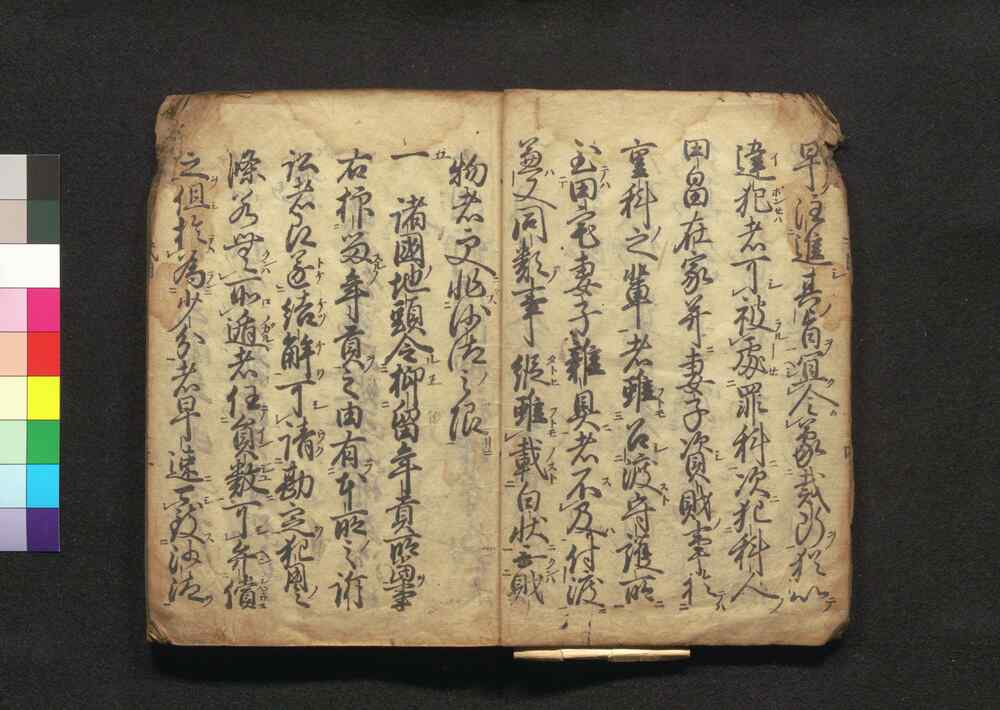 早注進其旨宜令蒙裁断猶以
違犯者可被處罪科次犯科人
田畠在家并妻子資財事於
重科之輩者雖召渡守護所
至田宅妻子雜具者不及付渡
兼又同類事縦雖載白状無財
物者更非沙汰之限
一 諸國地頭令抑留年貢所當事
右抑留年貢之由有本所之訴
訟者即遂結解可請勘定犯用之
條若無所遁者任員数可弁償
之但於為少分者早速可致沙汰